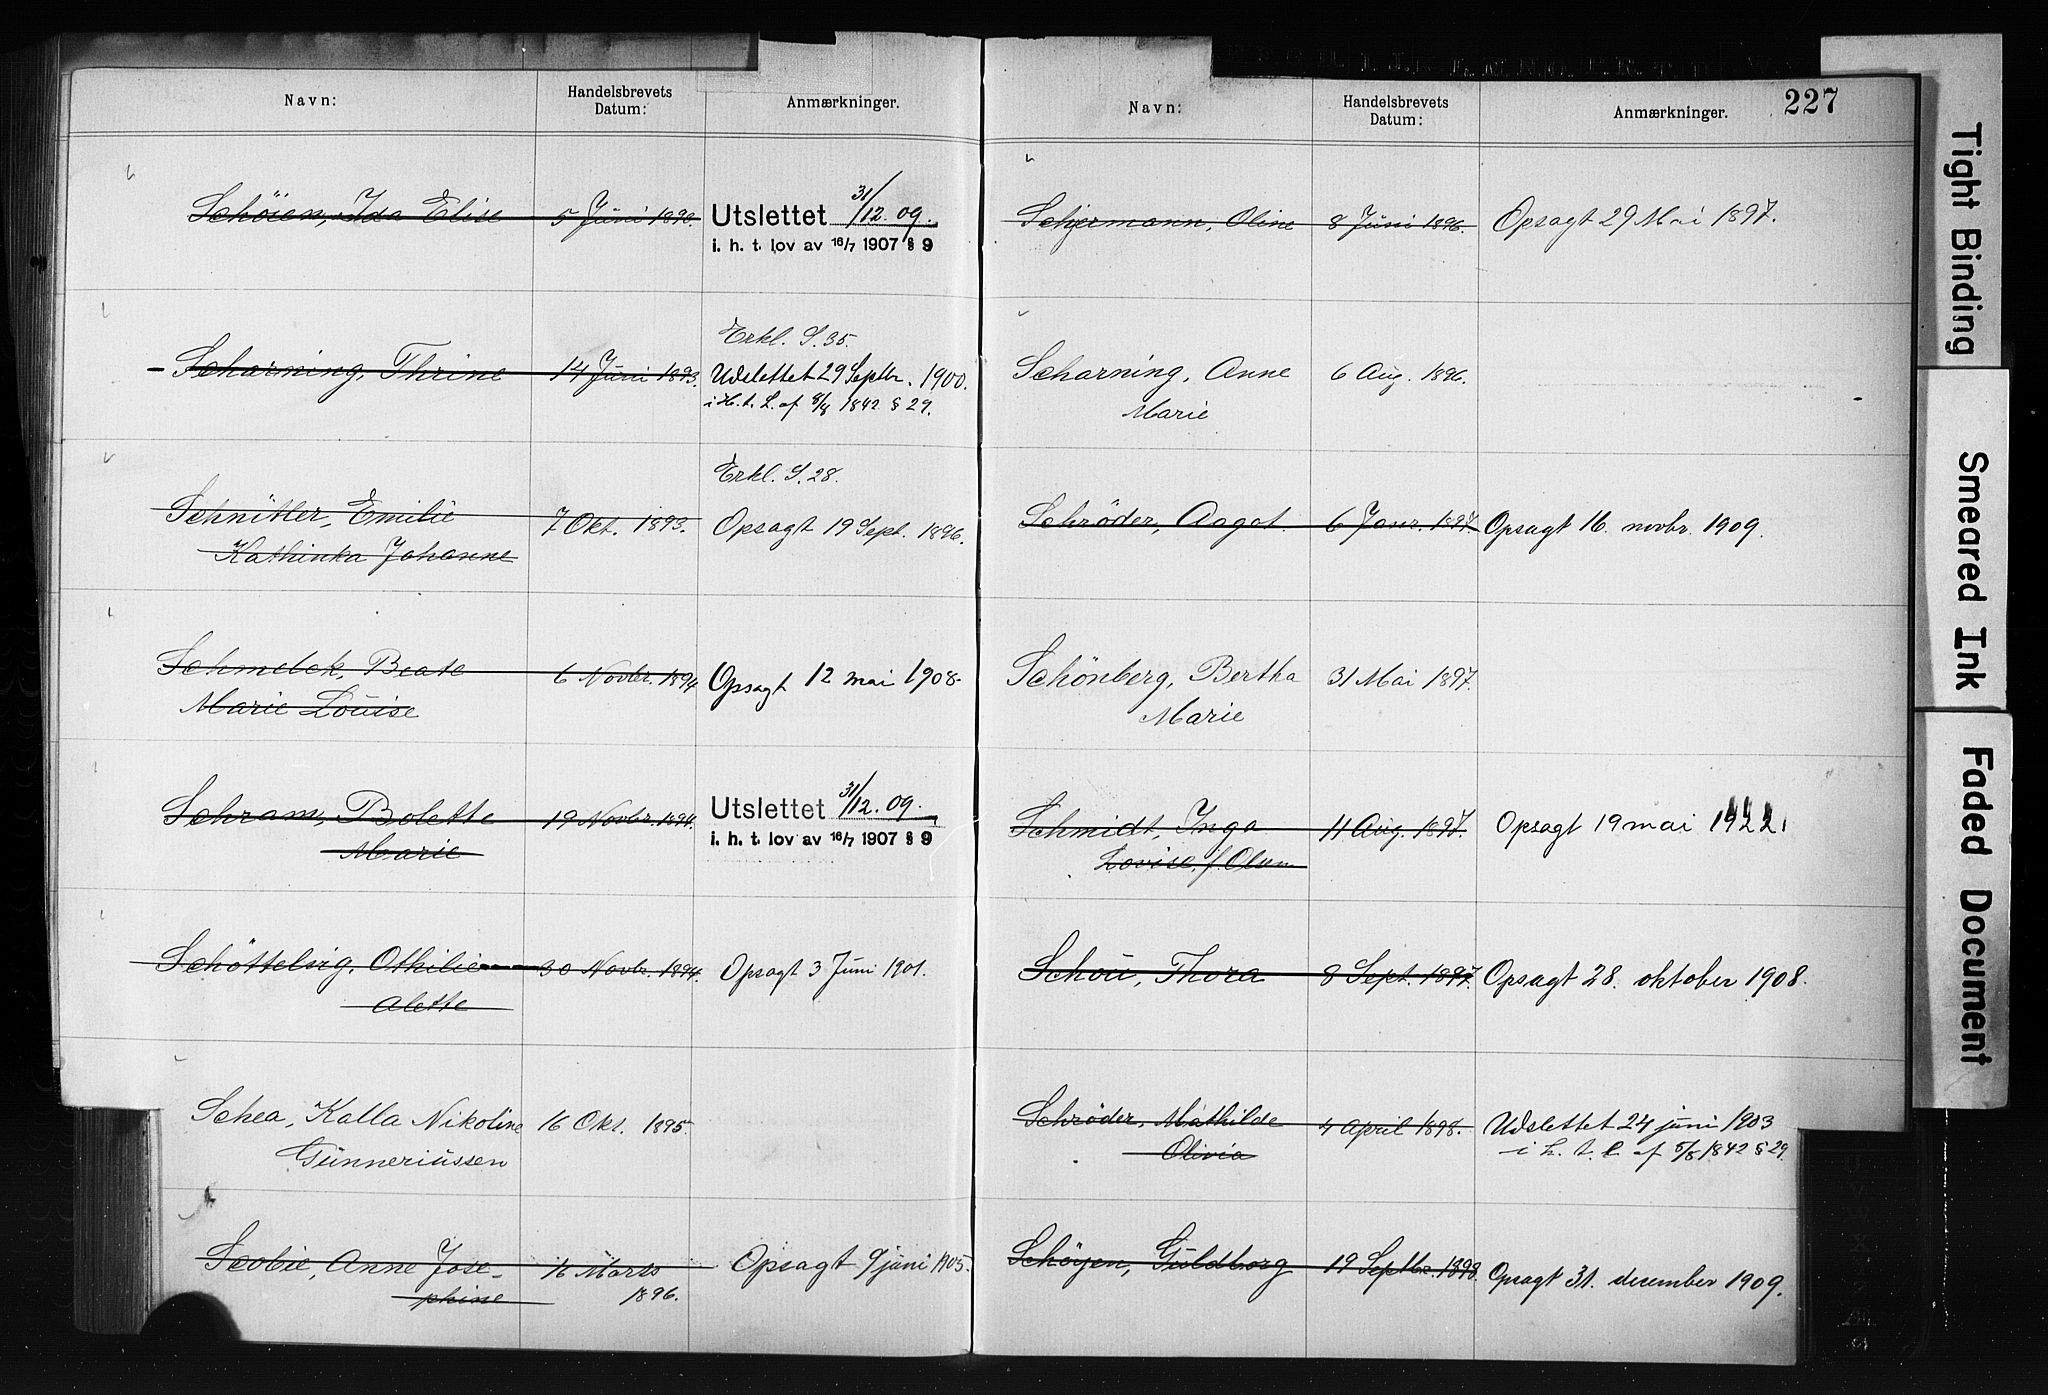 Navn:
Handelsbrevets
Datum:
Anmærkninger.
Schöien, Ida Elise
5 Juni 1890.
Utslettet 31/12.09.
i. h. t. lov av 16/7 1907 § 9
Scharning, Thrine
14 Juni 1893.
Erkl. S. 35.
Udslettet 29 Septbr. 1900.
i H. t. L. af 8/8 1842 § 29.
Schnitler, Emilie
Kathinka Johanne
7 Okt. 1893.
Erkl. S. 28.
Opsagt 19 Sept. 1896.
Schmelck, Beate
Marie Louise
6 Novbr. 1894
Opsagt 12 mai 1908.
Schram, Bolette
Marie
19 Novbr. 1894.
Utslettet 31/12.09.
i. h. t. lov av 16/7 1907 § 9
Schöttelvig, Othilie
Alette
30 Novbr. 1894.
Opsagt 3 Juni 1901.
Schea, Kalla Nikoline
Gunneriussen
16 Okt. 1895.
Scobie, Anne Jose-
phine
16 Marts
1896.
Opsagt 9 juni 1905.
227
Navn:
Handelsbrevets
Datum:
Anmærkninger.
Schjermann, Oline
8 Juni 1896.
Opsagt 29 Mai 1897.
Scharning, Anne
Marie
6 Aug. 1896.
Schrøder, Aagot.
6 Janr. 1897.
Opsagt 16. novbr. 1909.
Schönberg, Bertha
Marie
31 Mai 1897.
Schmidt, Inga
Lovise, f. Olum
11 Aug. 1897.
Opsagt 19 mai 1922.
Schou, Thora
8 Sept. 1897.
Opsagt 28. oktober 1908.
Schrøder, Mathilde
Olivia
4 April 1898.
Udslettet 24 juni 1903
i h. t. l. af 8/8 1842 § 29.
Schöyen, Guldborg
19 Septbr. 1898.
Opsagt 31. december 1909.
Tight Binding
Smeared Ink
Faded Document